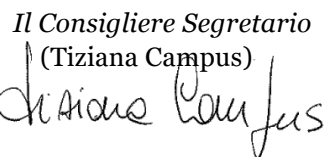 Il Consigliere Segretario
(Tiziana Campus)
Tiziana Campus